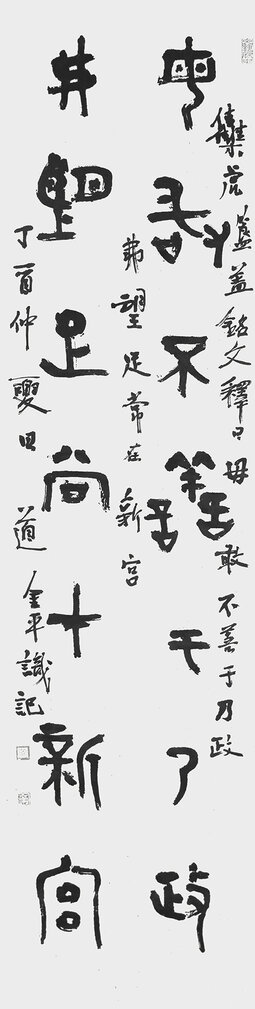 集虎簋盖銘文釋曰毋敢不善于乃政
毋敢不善于乃政
弗望足常在新宫
弗望足尚才新宫
丁酉仲夏日道金平識記